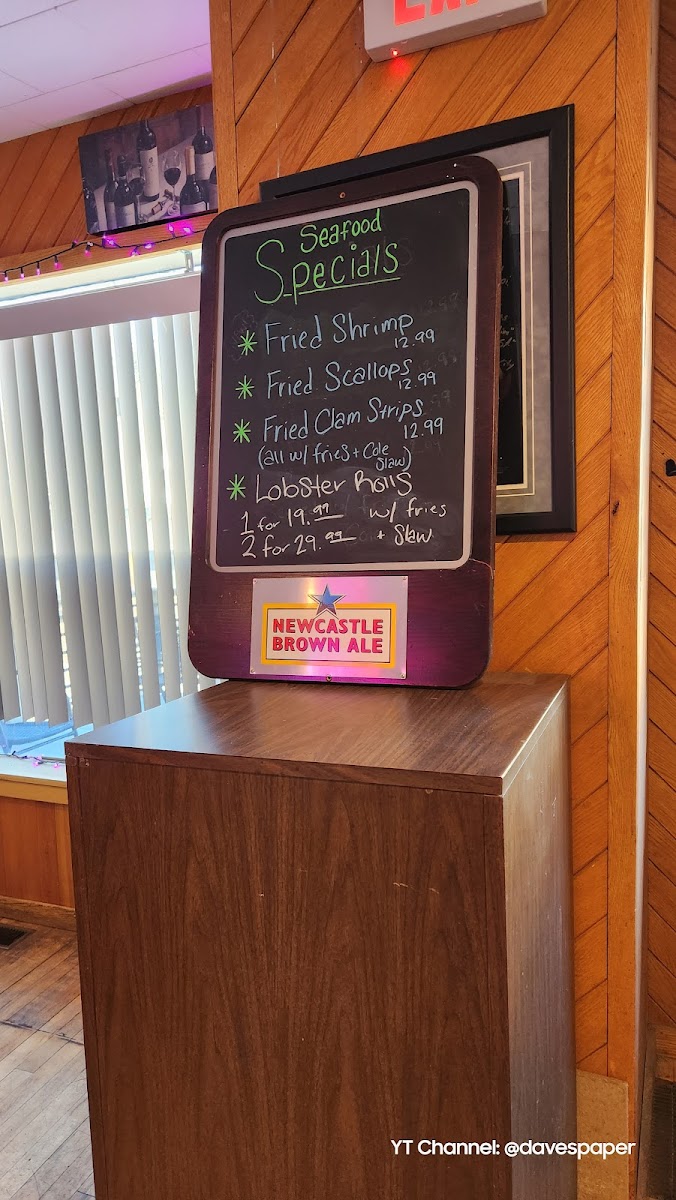 Seafood
Specials
* Fried Shrimp
12.99
* Fried Scallops
12.99
* Fried Clam Strips
12.99
(all w/ fries + Cole
Slaw)
* Lobster Rolls
1 for 19.99 w/ fries
2 for 29.99 + Slaw
NEWCASTLE
BROWN ALE
YT Channel: @davespaper